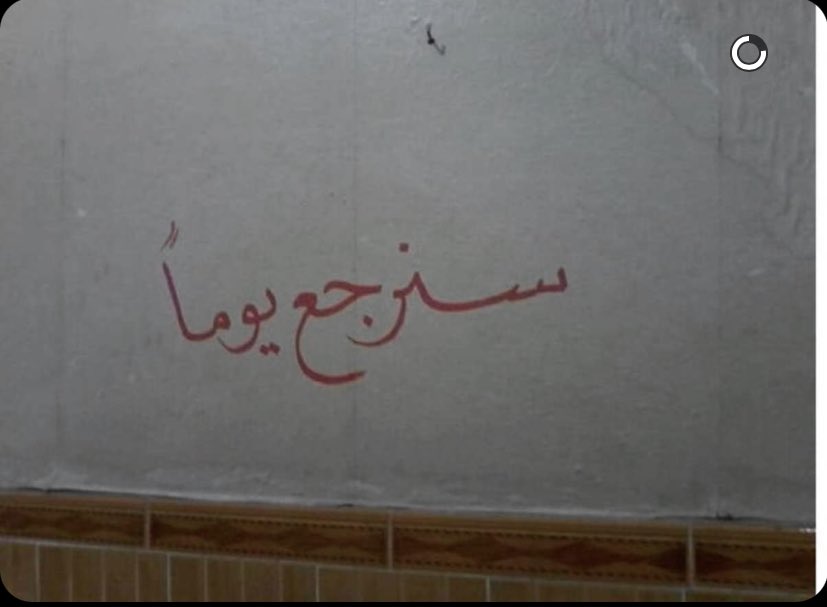 سنرجع يوماً